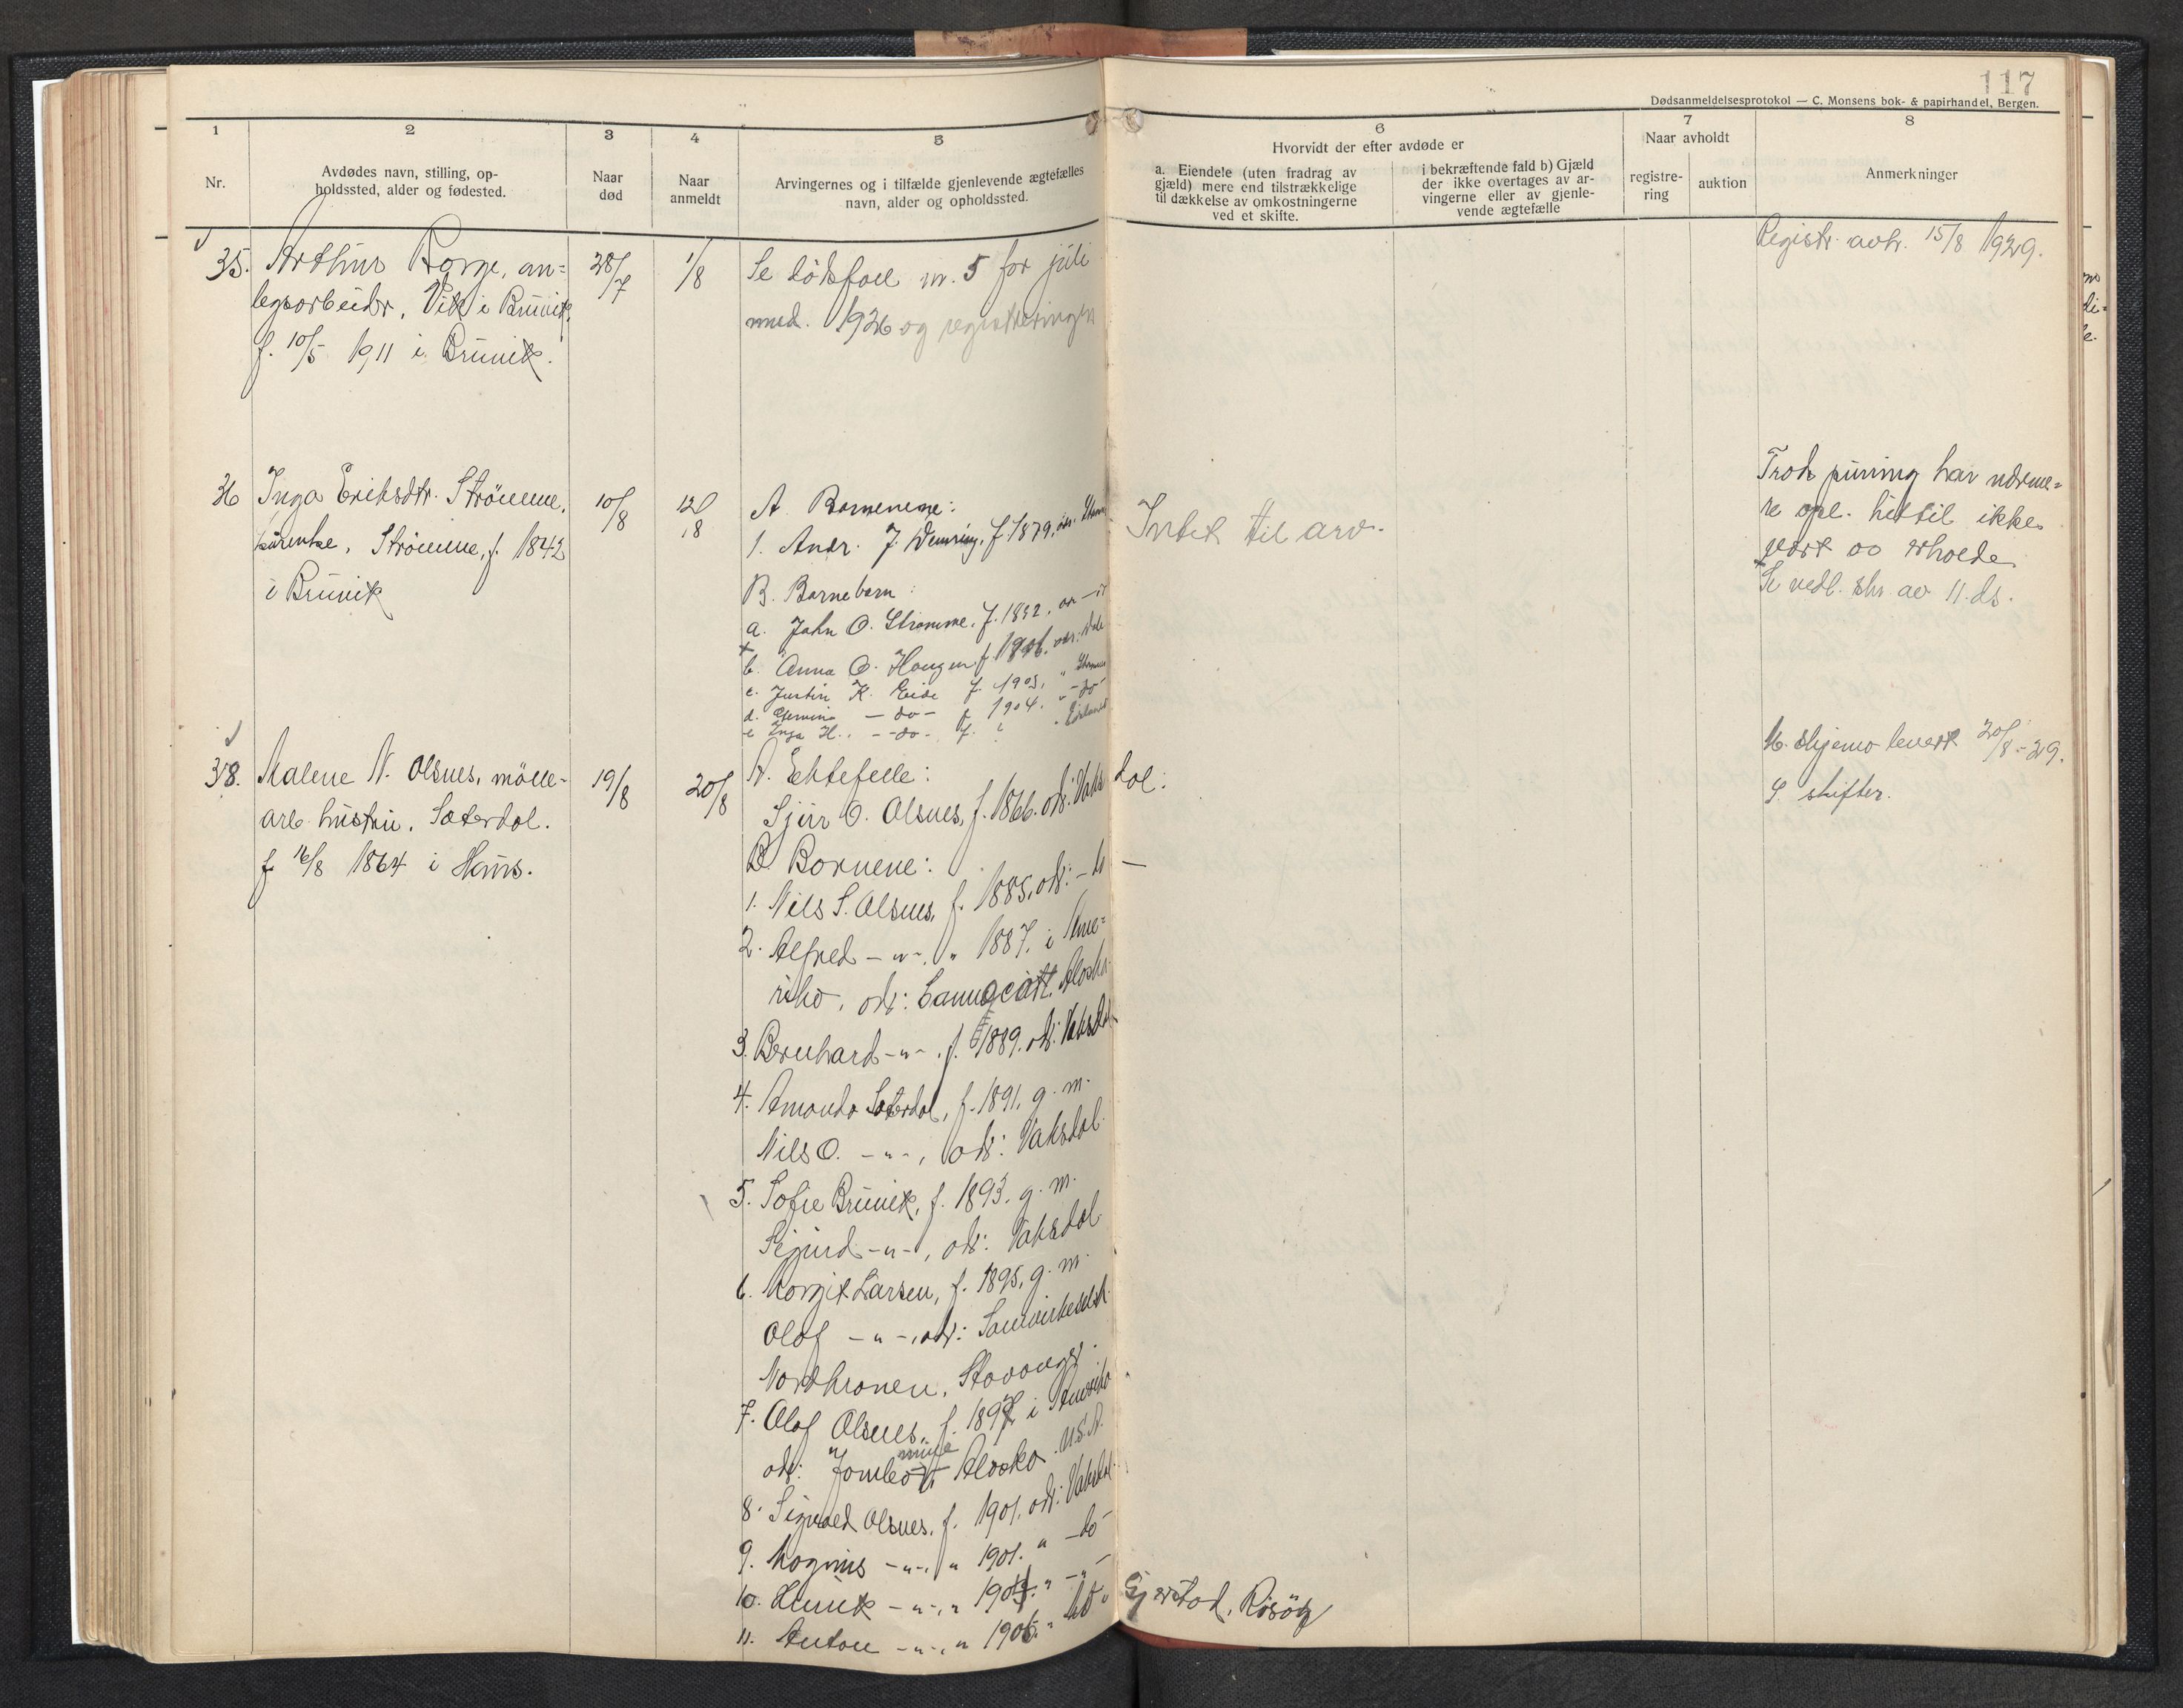 117
Dødsanmeldelsesprotokol — C. Monsens bok- & papirhandel, Bergen.
1 2 3 4 5 6 7 8
Nr.
Avdødes navn, stilling, op-
holdssted, alder og fødested.
Naar
død
Naar
anmeldt
Arvingernes og i tilfælde gjenlevende ægtefælles
navn, alder og opholdssted.
Hvorvidt der efter avdøde er
a. Eiendele (uten fradrag av
gjæld) mere end tilstrækkelige
til dækkelse av omkostningerne
ved et skifte.
i bekræftende fald b) Gjæld
der ikke overtages av ar-
vingerne eller av gjenle-
vende ægtefælle
Naar avholdt
registre-
ring
auktion
Anmerkninger
35. Arthur Borge, an=
legsarbeider, Vik i Bruvik,
f. 10/5 1911 i Bruvik.
28/7
1/8
Se dödsfall nr. 5 for juli
mnd. 1926 og registreringen
Registr. avh. 15/8 1929.
36 Inga Eriksdtr. Strömme,
kårenke, Strömme, f. 1842
i Bruvik
10/8
12/8
A. Barnene:
1. Andr. J. f. 1879,
B. Barnebarn:
a. John O. Strømme, f. 1892.
b. Anna O. Haugen f. 1906.
c. Justin K. Eide f. 1903,
d. — do — f. 1904. " - do -
e Inga H. . - do - f. ?
Intet til arv.
Trods purring har nærme=
re opl. hittil ikke
vært og erholde
Se vedl. skr. av 11. ds.
38. Malene N. Olsnes, mölle-
arb. hustru, Sæterdal.
f. 16/8 1864 i Hamr.
19/8
20/8
A. Ektefelle:
Sjur O. Olsnes, f. 1866. ads: Vaksdal.
B Barnene:
1. Nils S. Olsnes, f. 1885, ads: - " —
2. Alfred - " -, " 1887. i Ame=
rika, ads: Alaska
3. Bernhard - " -, f. 1889. ads: Vaksdal
4. Amanda Sæterdal, f. 1891, g. m.
Nils O. - " -, ads: Vaksdal.
5. Sofie Bruvik, f. 1893. g. m.
Sigurd - " -, ads: Vaksdal
6. Margit Larsen, f. 1895, g. m.
Olaf - " -, ads: Samvirkelsk.
Nordkronen, Stavanger.
7. Olaf Olsnes, f. 1897 i Amerika
ads: mine Alaska U.S.A.
8. Sigvald Olsnes, f. 1901. ads: Vaksdal.
9. Magnus - " -, " 1901. " - do -
10. Henrik - " -, " 1904. " - " -
11. Anton - " -, " 1906. " Gjerstad, Risör
M. skjema levert 20/8-29.
S. skifter.